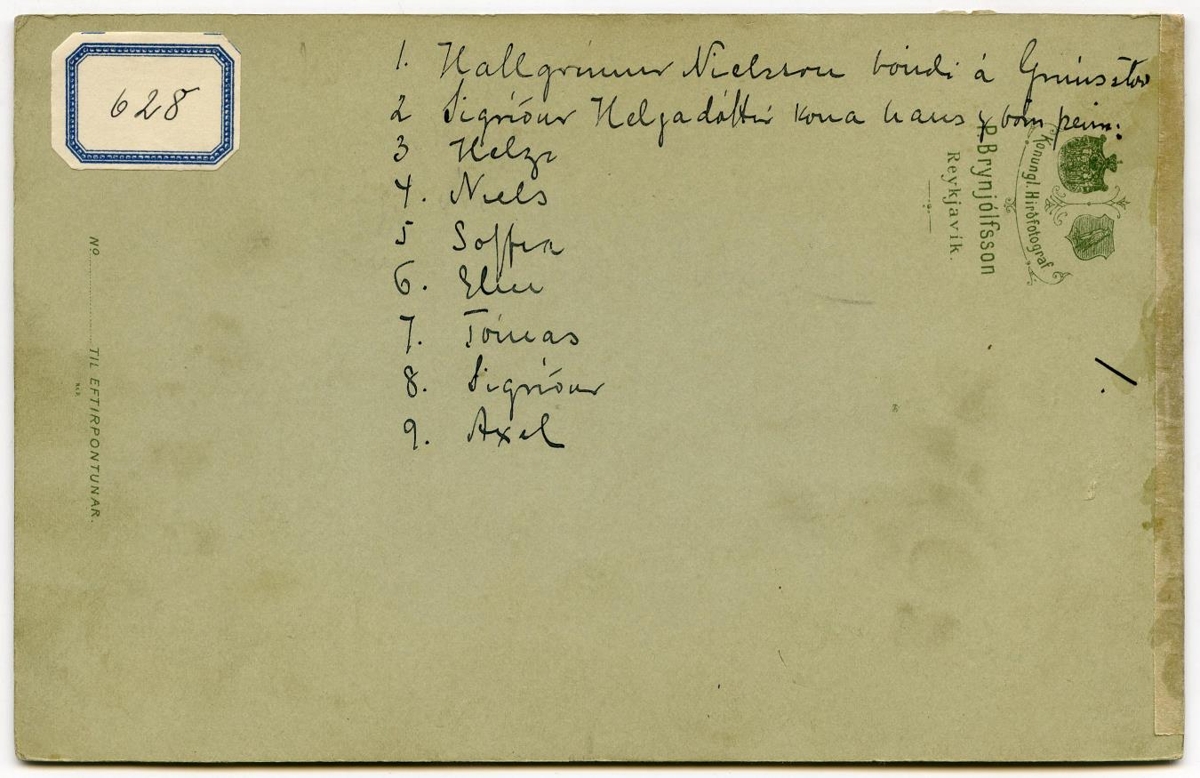 628
1. Hallgrímur Níelsson bóndi á Grímsstöð
2 Sigríður Helgadóttir kona hans & börn þeirra:
3 Helga
4. Níels
5 Soffía
6. Elín
7. Tómas
8. Sigríður
9. Axel
Konungl. Hirðfotograf
P. Brynjólfsson
Reykjavík.
No
TIL EFTIRPONTUNAR.